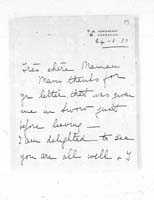 Très chère Maman
Many thanks for
yr letter that was given
me in
just
before leaving —
I am delighted to see
you are all well & I